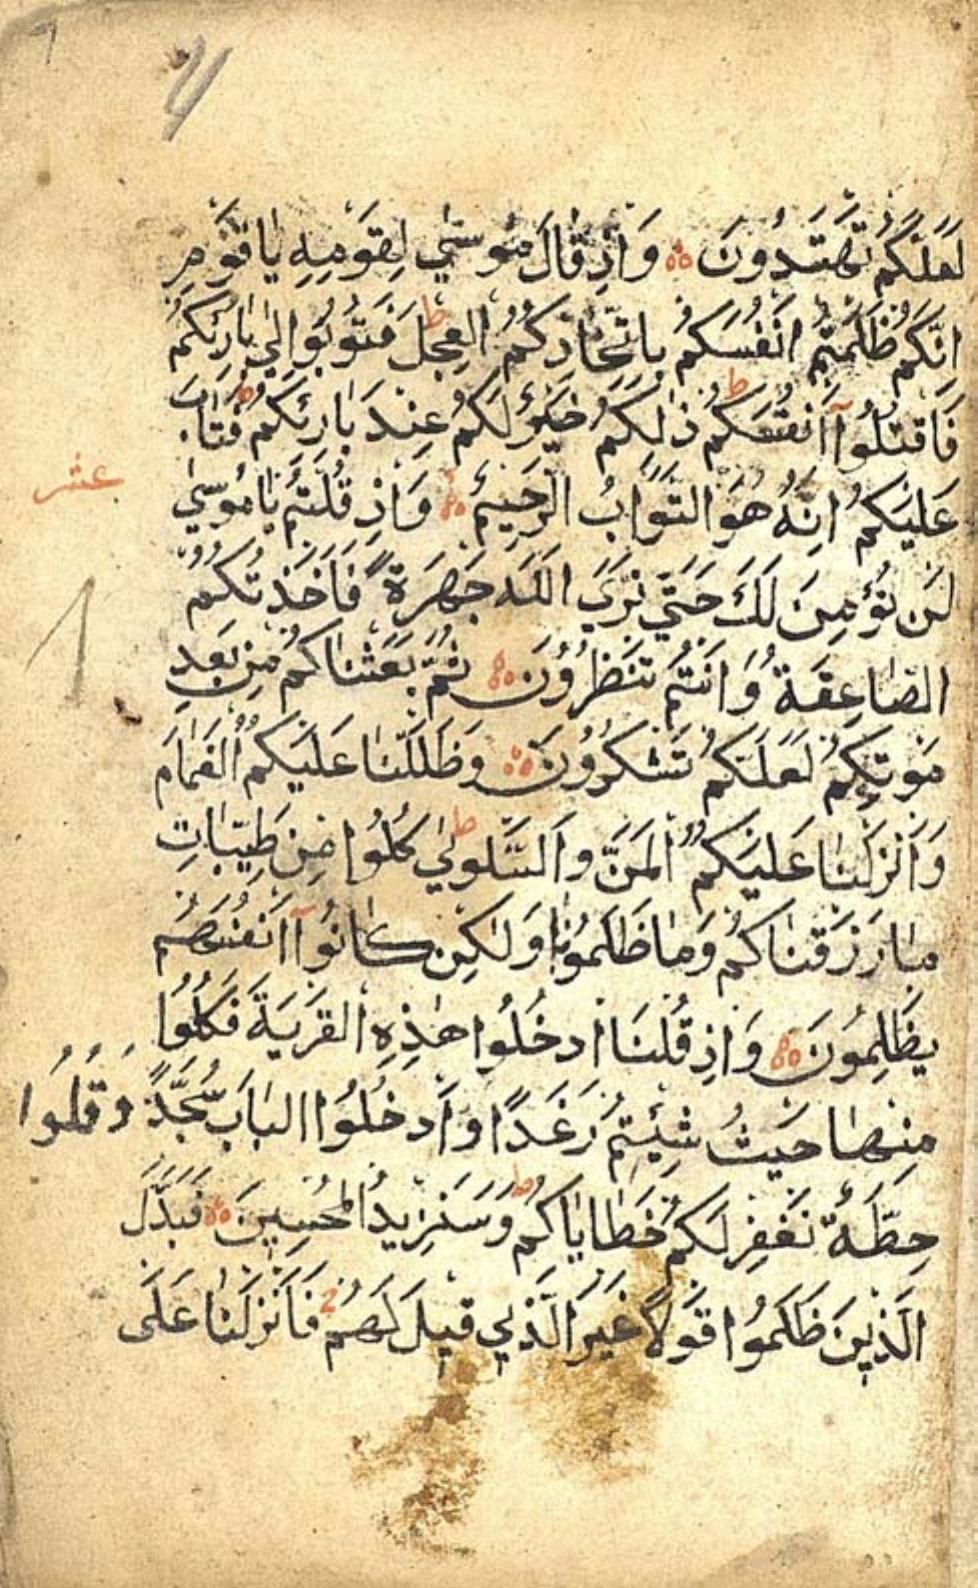 لَعَلَّكُمْ تَهْتَدُونَ وَاِذْ قَالَ مُوسٰى لِقَوْمِهِ يَا قَوْمِ
اِنَّكُمْ ظَلَمْتُمْ اَنْفُسَكُمْ بِاتِّخَاذِكُمُ الْعِجْلَ ط فَتُوبُوا اِلٰى بَارِئِكُمْ
فَاقْتُلُوا اَنْفُسَكُمْ ط ذٰلِكُمْ خَيْرٌ لَكُمْ عِنْدَ بَارِئِكُمْ ط فَتَابَ
عَلَيْكُمْ اِنَّهُ هُوَ التَّوَّابُ الرَّحِيمُ وَاِذْ قُلْتُمْ يَا مُوسٰى
عشر
لَنْ نُؤْمِنَ لَكَ حَتّٰى نَرَى اللّٰهَ جَهْرَةً فَاَخَذَتْكُمُ
الصَّاعِقَةُ وَاَنْتُمْ تَنْظُرُونَ ثُمَّ بَعَثْنَاكُمْ مِنْ بَعْدِ
مَوْتِكُمْ لَعَلَّكُمْ تَشْكُرُونَ وَظَلَّلْنَا عَلَيْكُمُ الْغَمَامَ
وَاَنْزَلْنَا عَلَيْكُمُ الْمَنَّ وَالسَّلْوٰى ط كُلُوا مِنْ طَيِّبَاتِ
مَا رَزَقْنَاكُمْ وَمَا ظَلَمُونَا وَلٰكِنْ كَانُوا اَنْفُسَهُمْ
يَظْلِمُونَ وَاِذْ قُلْنَا ادْخُلُوا هٰذِهِ الْقَرْيَةَ فَكُلُوا
مِنْهَا حَيْثُ شِئْتُمْ رَغَدًا وَادْخُلُوا الْبَابَ سُجَّدًا وَقُولُوا
حِطَّةٌ نَغْفِرْ لَكُمْ خَطَايَاكُمْ ط وَسَنَزِيدُ الْمُحْسِنِينَ فَبَدَّلَ
الَّذِينَ ظَلَمُوا قَوْلًا غَيْرَ الَّذِي قِيلَ لَهُمْ فَاَنْزَلْنَا عَلَى